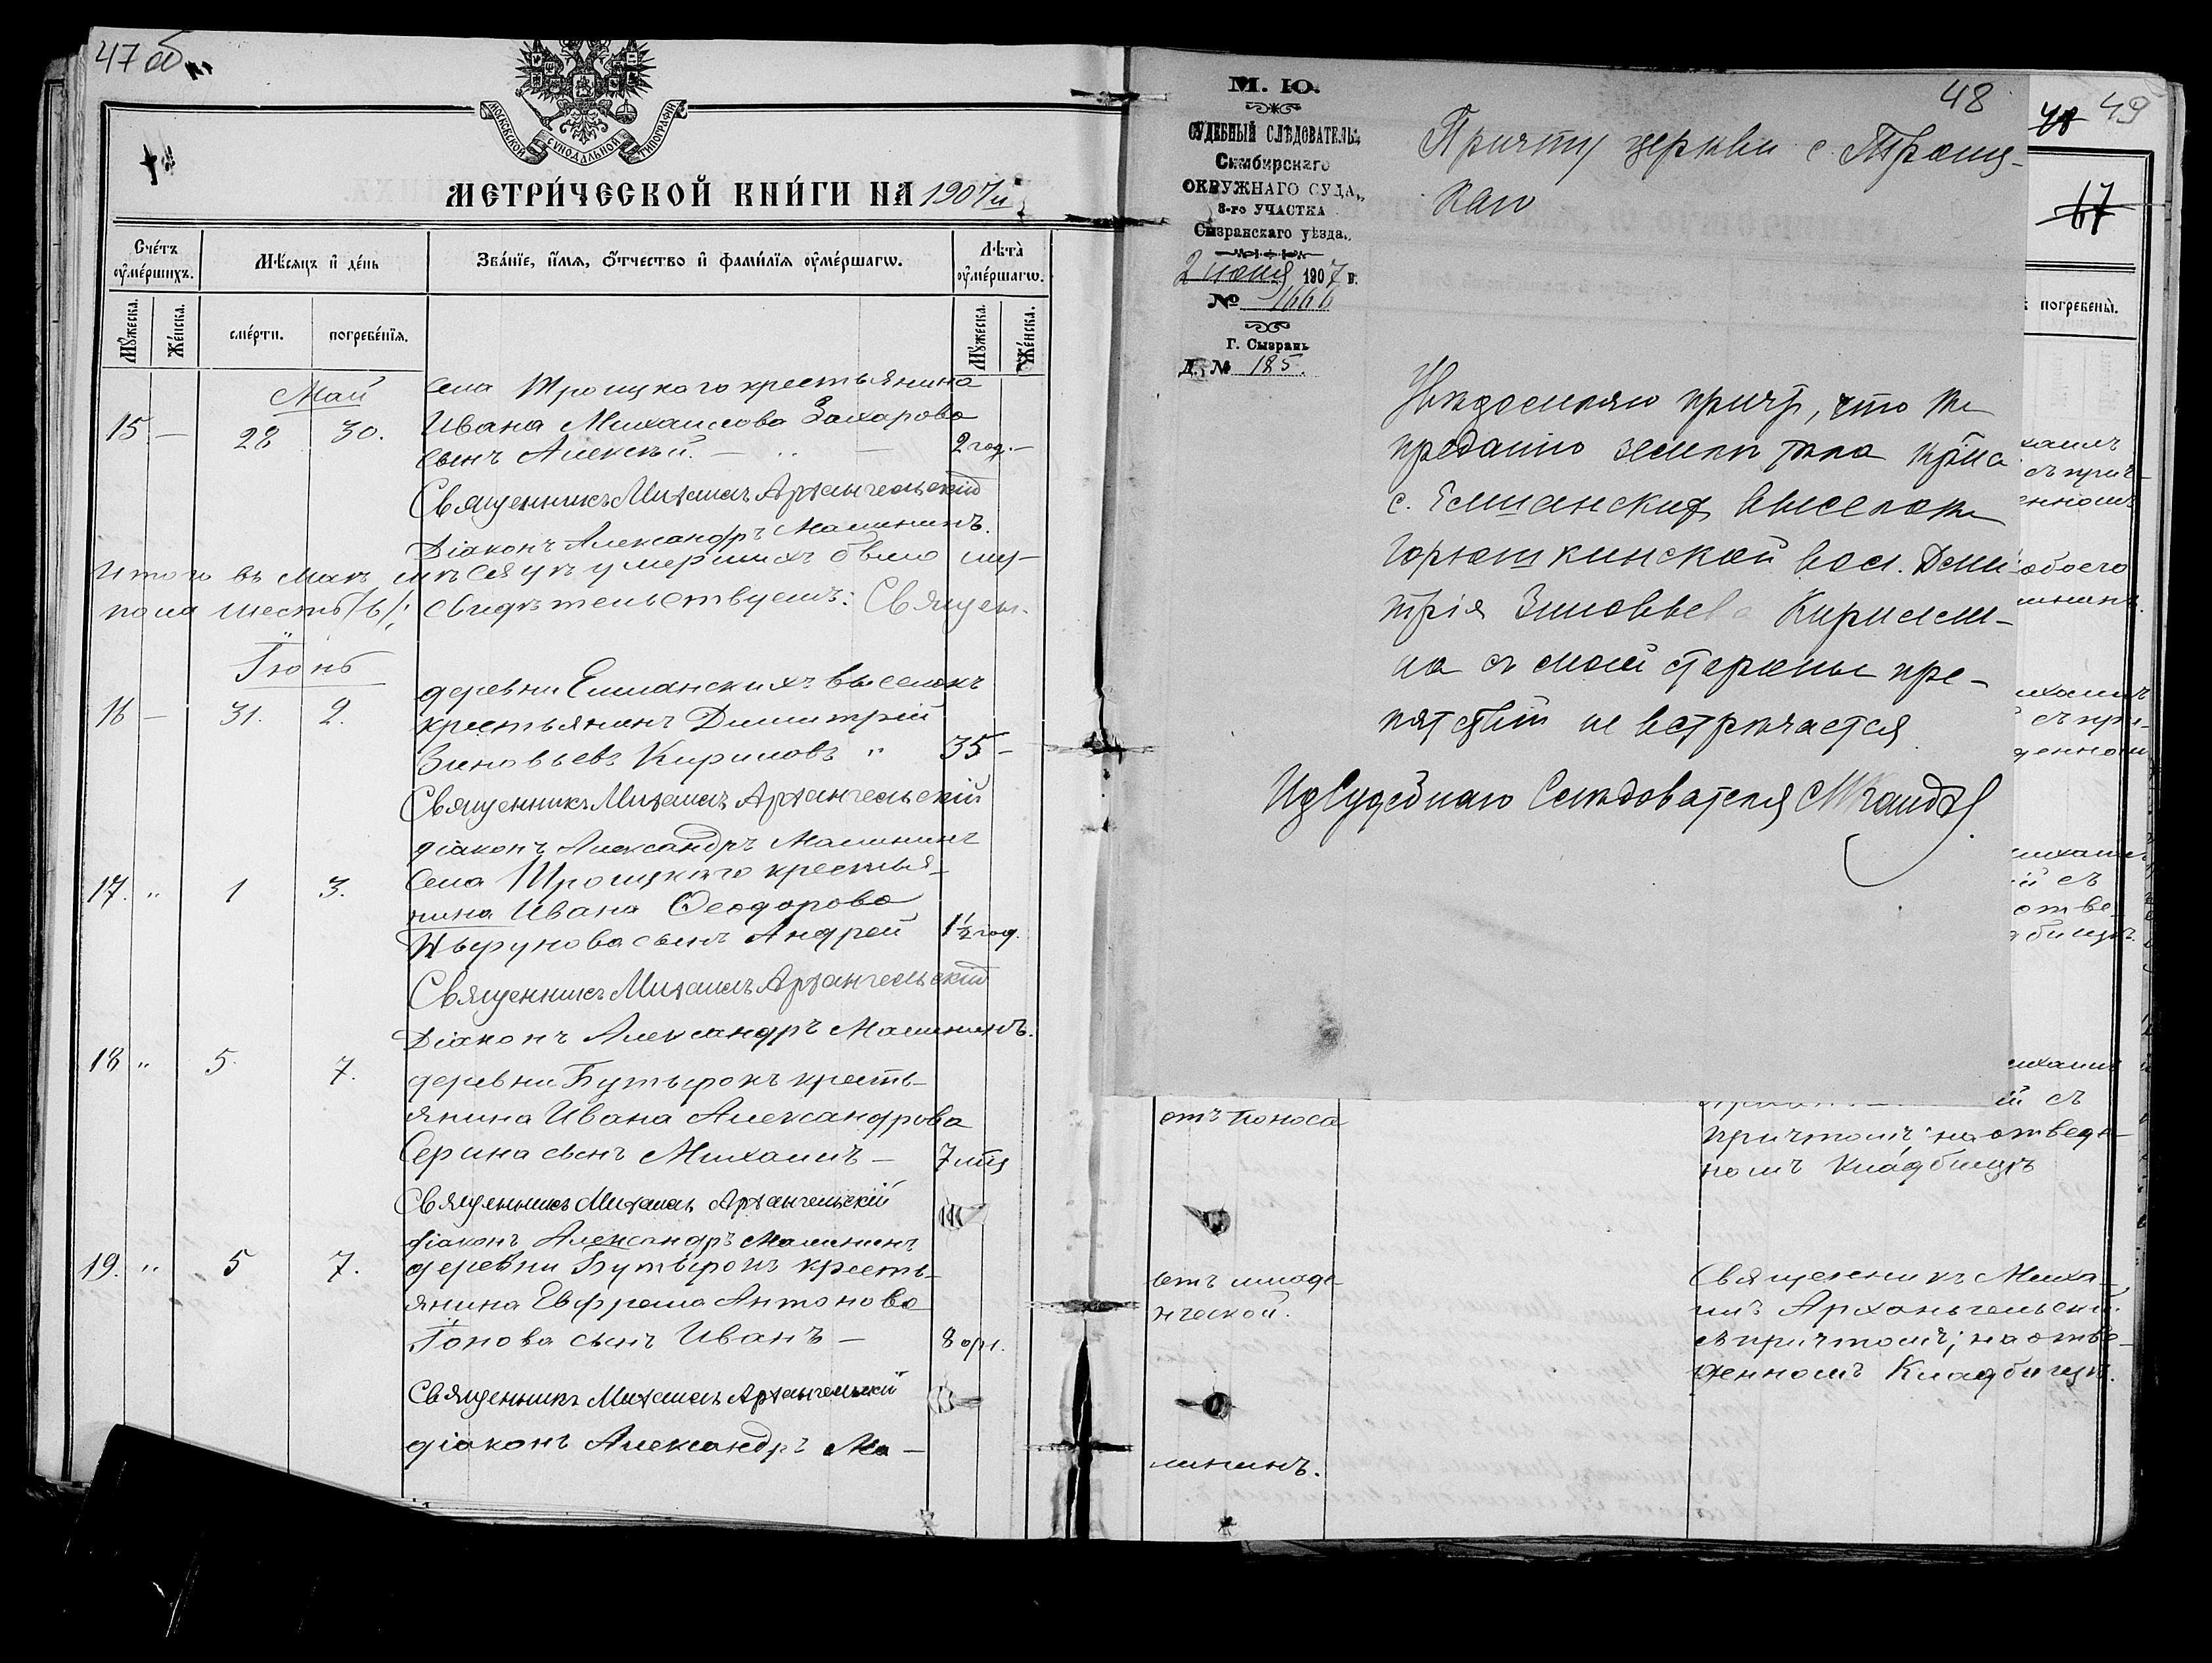 47 об.
МОСКОВСКОЙ СѴНОДАЛЬНОЙ ТИПОГРАФІИ
МЕТРИ́ЧЕСКОЙ КНИ́ГИ НА 1907 й
Сче́тъ ᲂумéршихъ.
Мѣ́сяцъ и҆ де́нь
Зва́нїе, и҆́мя, ѻ҆́тчество и҆ фами́лїя ᲂумéршагѡ.
Лѣ́та ᲂумéршагѡ.
Мꙋ́жеска.
Же́нска.
сме́рти.
погребе́нїя.
Мꙋ́жеска.
Же́нска.
Май
села Троицкаго крестьянина
15. — 28 30. Ивана Михаилова Захарова
сынъ Алексѣй. — 2 год. —
Священникъ Михаилъ Архангельскій
Діаконъ Александръ Малининъ.
Итого въ маѣ мѣсяцѣ умершихъ было муж-
пола шесть /6/; свидѣтельствуемъ: Священ.
Іюнь
деревни Елшанскихъ выселокъ
16 — 31. 2. крестьянинъ Димитрій
Зиновьевъ Кириловъ " 35 —
Священникъ Михаилъ Архангельскій
діаконъ Александръ Малининъ
села Троицкаго крестья-
17. " 1 3. нина Ивана Ѳеодорова
сынъ Андрей 1½ год.
Священникъ Михаилъ Архангельскій
Діаконъ Александръ Малининъ.
18 " 5. 7. деревни Бутырокъ кресть-
янина Ивана Александрова
Серина сынъ Михаилъ — 7 мц
Священникъ Михаилъ Архангельскій
діаконъ Александръ Малининъ
19. " 5 7. деревни Бутырокъ кресть-
янина Евфрема Антонова
сынъ Иванъ — 8
Священникъ Михаилъ Архангельскій
діаконъ Александръ Ма-
М. Ю.
СУДЕБНЫЙ СЛѢДОВАТЕЛЬ
Симбирскаго
ОКРУЖНАГО СУДА,
3-го УЧАСТКА
Сызранскаго уѣзда.
2 іюня 1907 г.
№ 1666
Г. Сызрань
Д. № 185.
48
Причту церкви с. Троиц-
каго
Увѣдомляю причтъ, что къ
преданію землѣ тѣла кр-на
с. Елшанскихъ выселокъ
Горюшкинской вол. Дми-
трія Зиновьева Кирилли-
на съ моей стороны пре-
пятствій не встрѣчается
Судебнаго Слѣдователя
49
17
погребены̀.
хаилъ
съ прич-
енномъ
обоего
ининъ.
ихаилъ
съ при-
денномъ
ихаилъ
й съ
отве-
дбищѣ.
ихаилъ
отъ поноса
й съ
причтомъ; на отведе-
номъ кладбищѣ
отъ младе-
нческой.
Священникъ Миха-
илъ Архангельскій
съ причтомъ; на отве-
денномъ кладбищѣ.
лининъ.